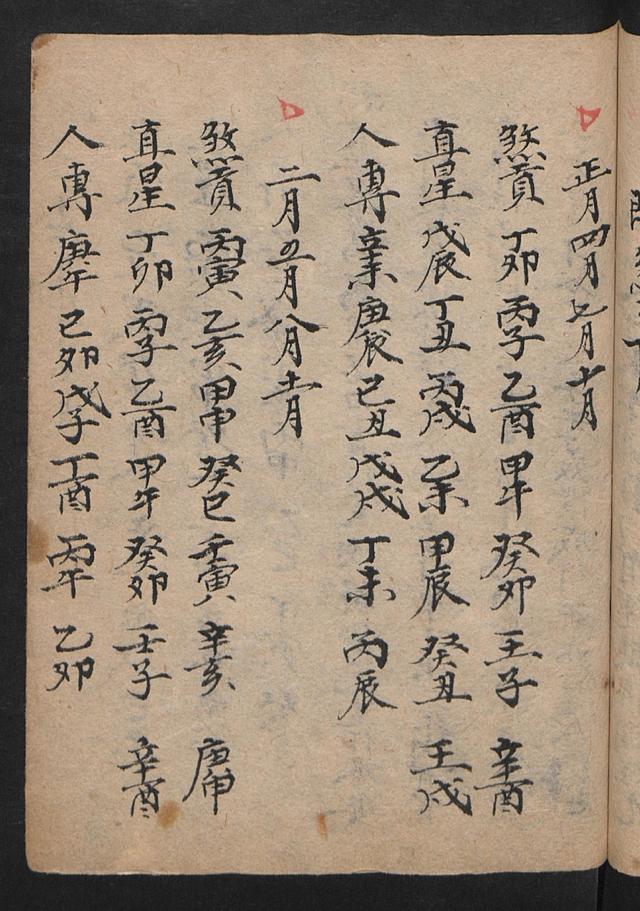 正月四月七月十月
煞貢丁卯丙子乙酉甲午癸卯壬子辛酉
直星戊辰丁丑丙戌乙未甲辰癸丑壬戌
人專辛未庚辰己丑戊戌丁未丙辰
二月五月八月十一月
煞貢丙寅乙亥甲申癸巳壬寅辛亥庚申
直星丁卯丙子乙酉甲午癸卯壬子辛酉
人專庚午己卯戊子丁酉丙午乙卯